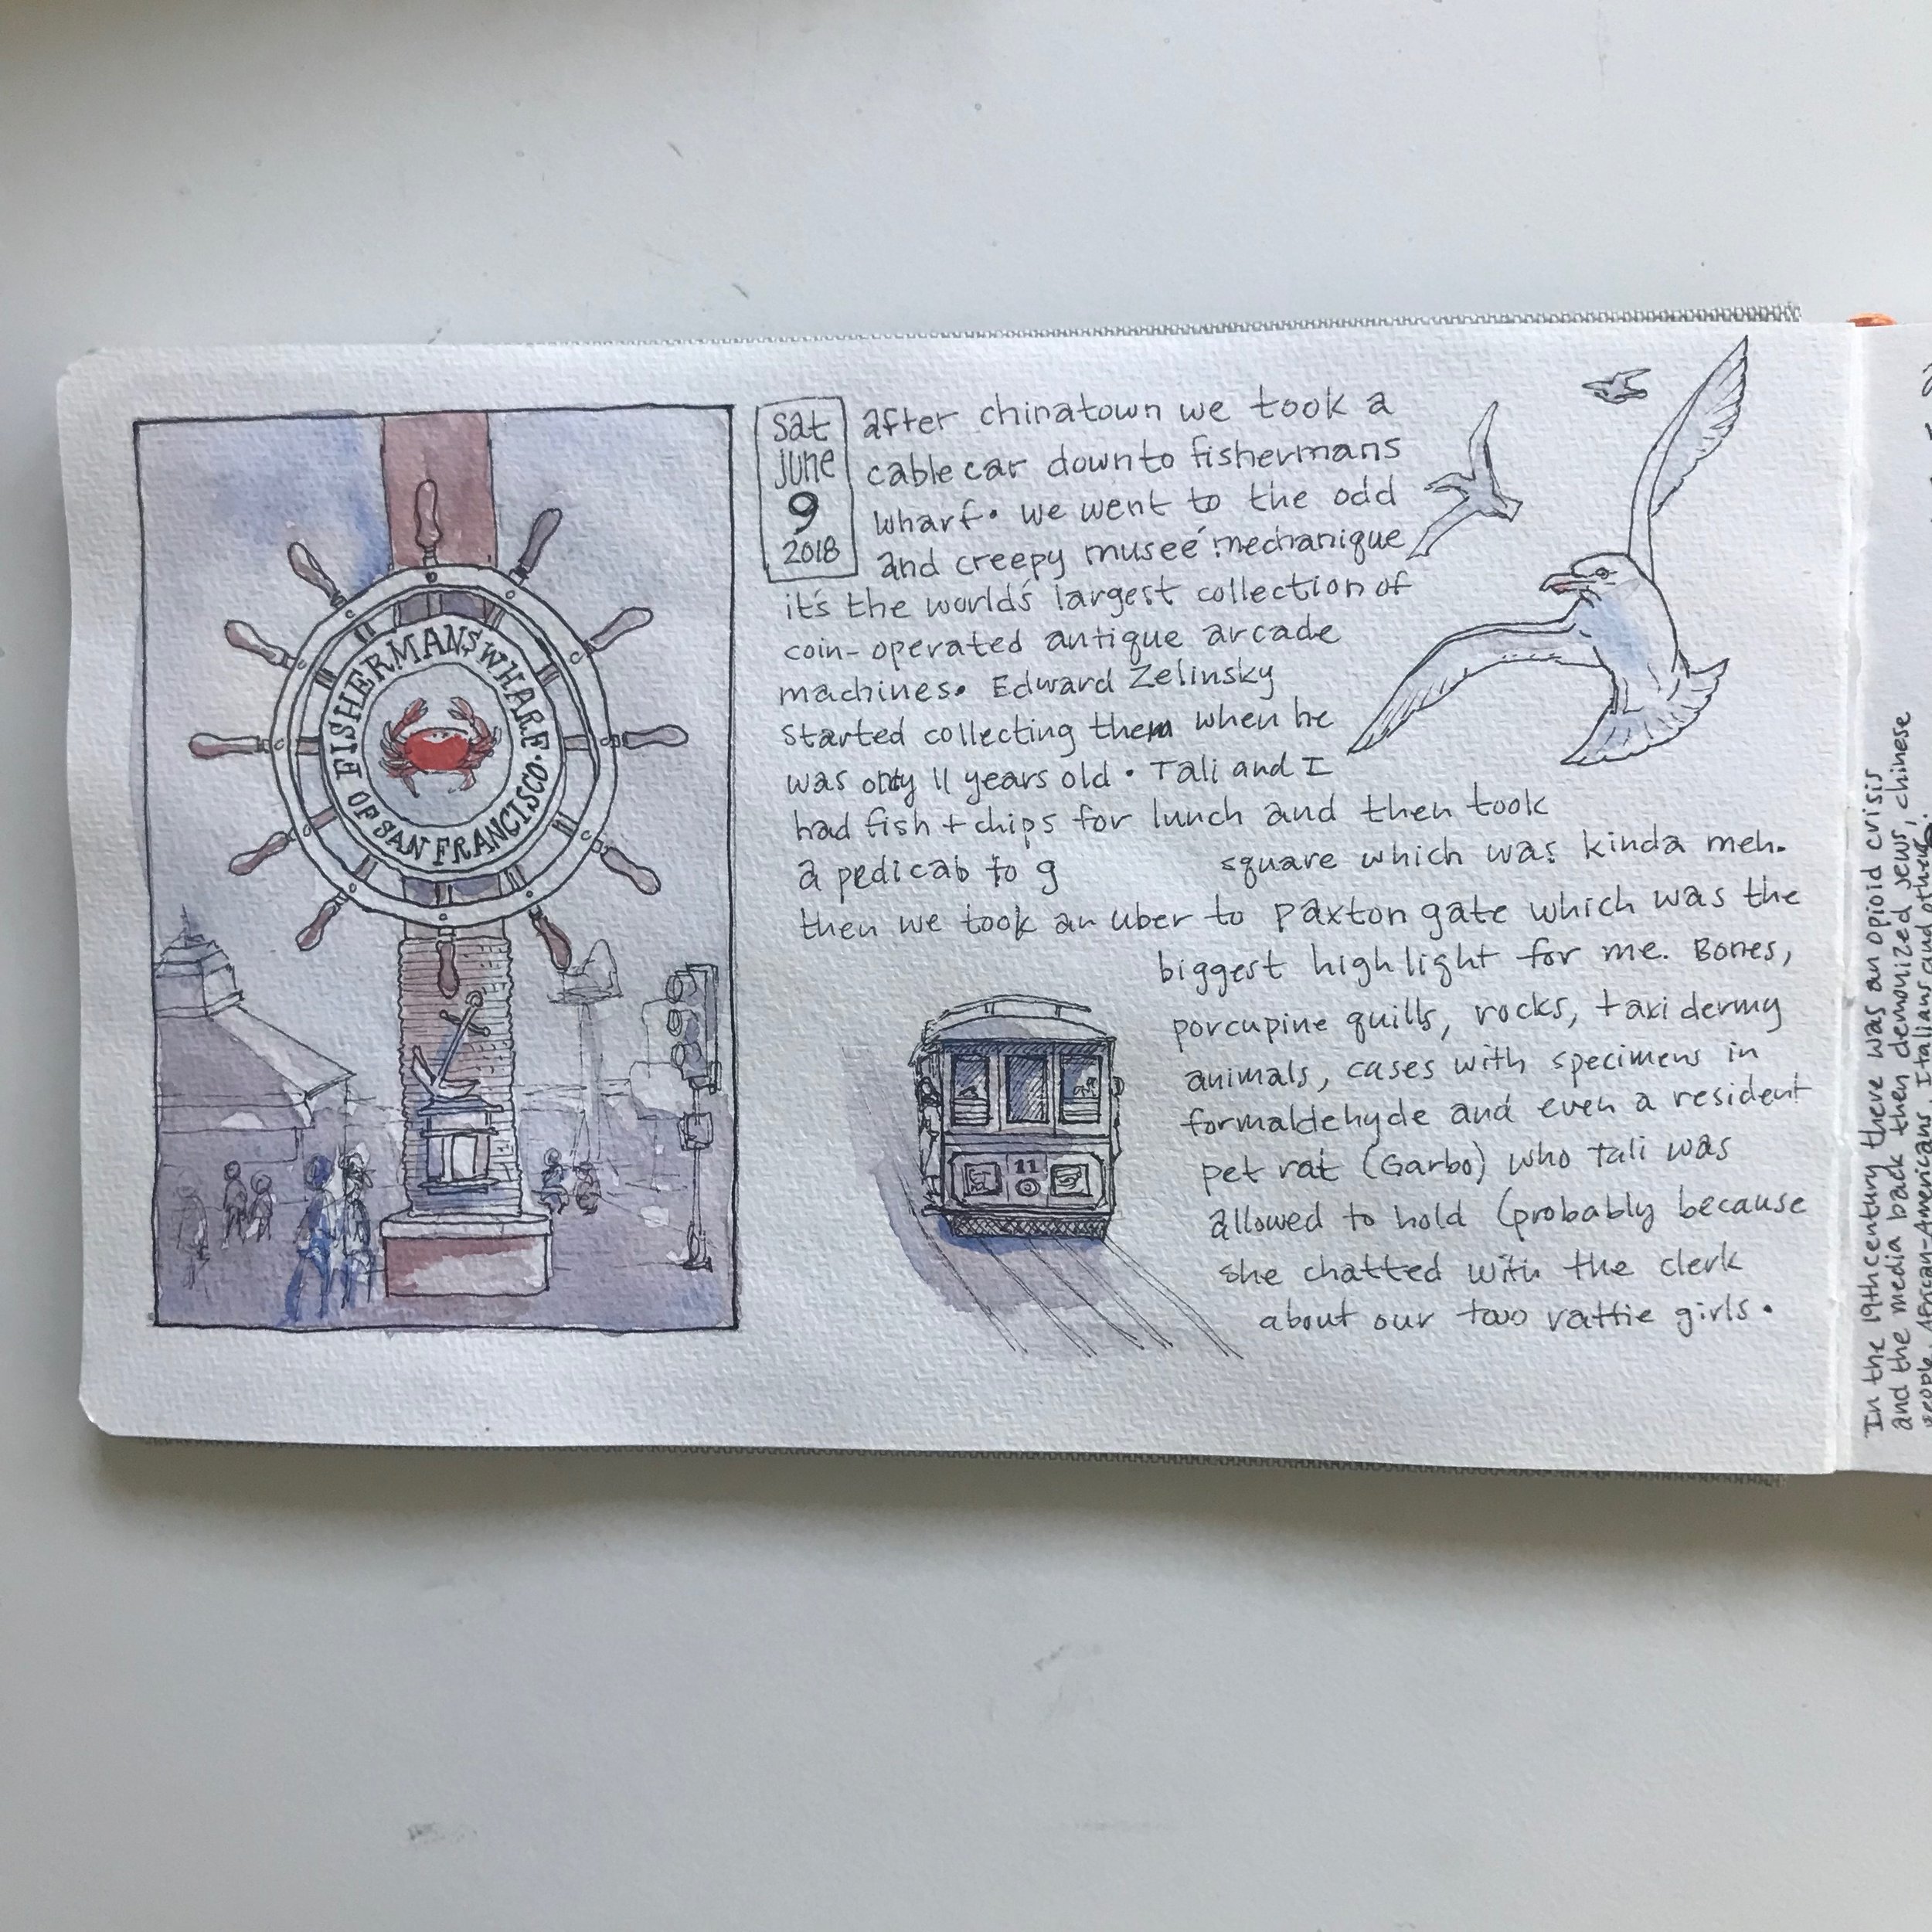 FISHERMANS WHARF •
OF SAN FRANCISCO •
sat
june
9
2018
after chinatown we took a
cable car down to fishermans
wharf. we went to the odd
and creepy museé mechanique
it's the world's largest collection of
coin-operated antique arcade
machines. Edward Zelinsky
started collecting them when he
was only 11 years old. Tali and I
had fish + chips for lunch and then took
a pedicab to g square which was kinda meh.
then we took an uber to paxton gate which was the
biggest highlight for me. Bones,
porcupine quills, rocks, taxidermy
animals, cases with specimens in
formaldehyde and even a resident
pet rat (Garbo) who tali was
allowed to hold (probably because
she chatted with the clerk
about our two rattie girls.
11
In the 19th century there was an opioid crisis
and the media back then demonized Jews, chinese
people, African-Americans, Italians and others.